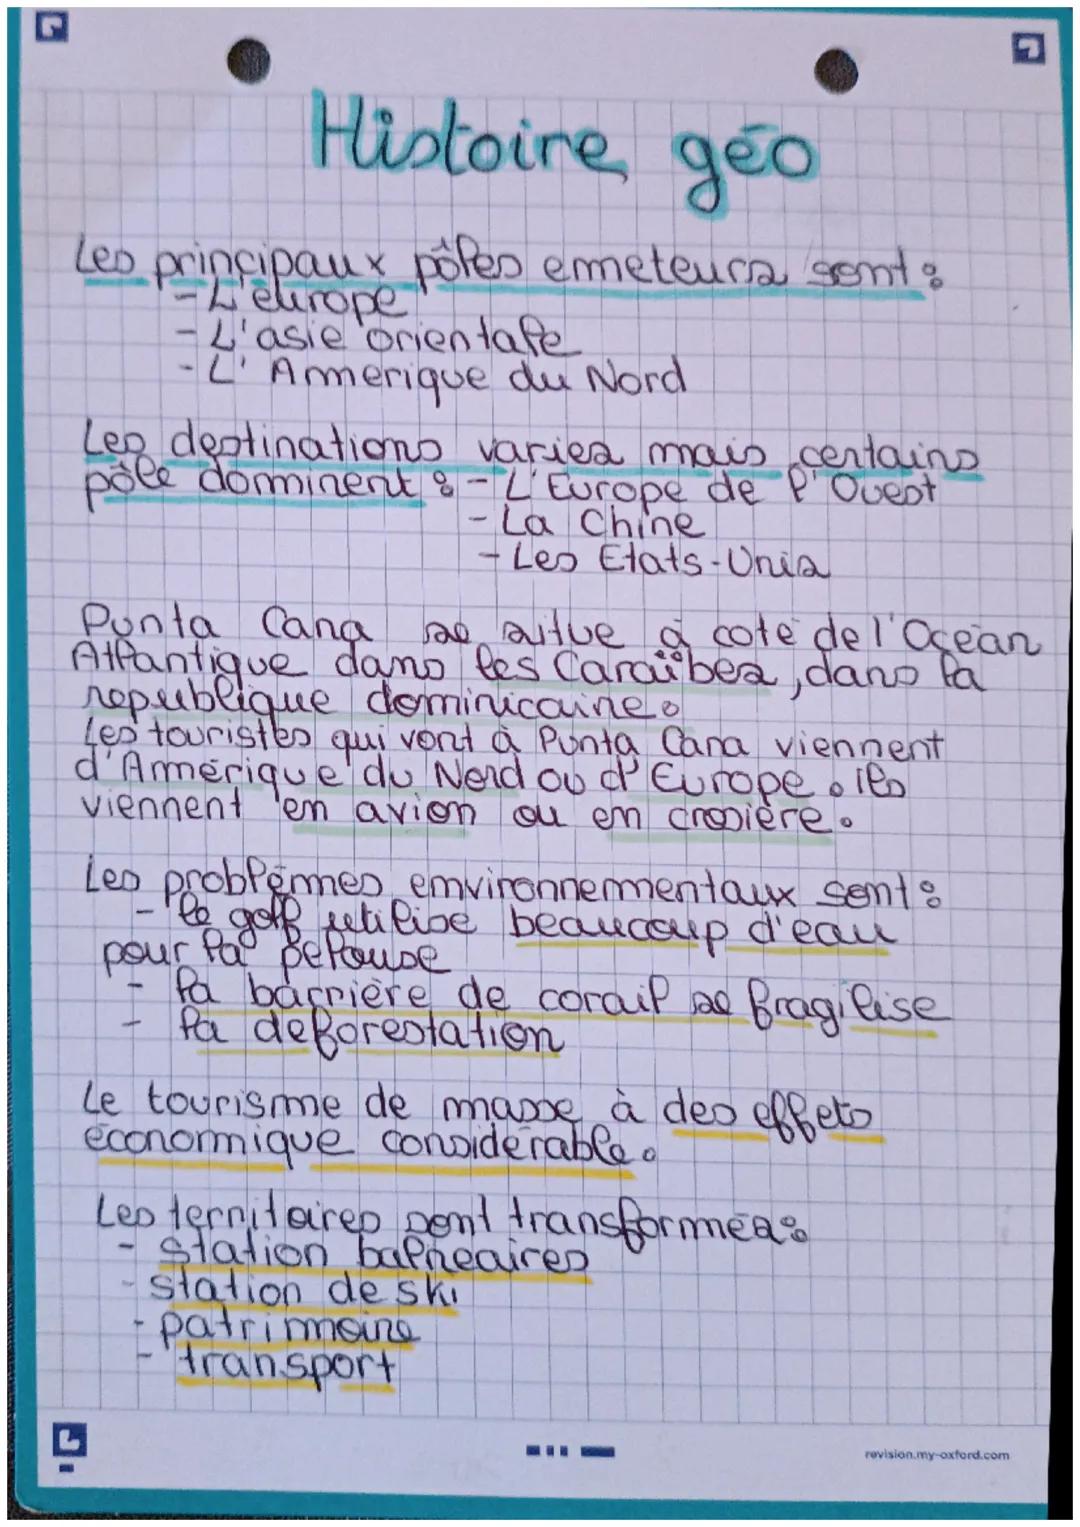 Histoire géo
Les principaux pôles emmeteurs sont :
- L'europe
- L'asie orientale
- L'Amerique du Nord
Les destinations varies mais certains
pôle dominent : - L'Europe de l'Ouest
- La Chine
- Les Etats-Unis
Punta Cana se situe à coté de l'Océan
Atlantique dans les Caraïbes, dans la
republique dominicaine.
Les touristes qui vont à Punta Cana viennent
d'Amérique du Nord ou d'Europe. ils
viennent en avion ou en crosière.
Les problémes emvironnementaux sont :
- le golf utilise beaucoup d'eau
pour la pelouse
- la barrière de corail se fragilise
- la deforestation
Le tourisme de masse à des effets
économique considérable.
Les territoires sont transformés :
- station balnéaires
- station de ski
- patrimoine
- transport
revision.my-oxford.com